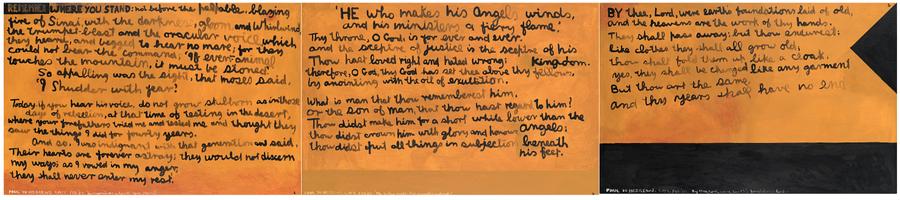 REMEMBER WHERE YOU STAND: not before the palpable, blazing
fire of Sinai, with the darkness, gloom and whirlwind,
the trumpet-blast and the oracular voice which
they heard, and begged to hear no more; for they
could not bear the command, 'If even an animal
touches the mountain, it must be stoned.'
So appalling was the sight, that Moses said,
'I shudder with fear'.
Today if you hear his voice, do not grow stubborn as in those
days of rebellion, at that time of testing in the desert,
where your forefathers tried me and tested me and thought they
saw the things I did for fourty years.
And so, I was indignant with that generation and said,
Their hearts are forever astray; they would not discern
my ways; as I vowed in my anger,
they shall never enter my rest.
'HE who makes his Angels winds,
and his ministers a fiery flame.'
Thy throne, O God, is for ever and ever,
and the sceptre of justice is the sceptre of his
kingdom.
Thou hast loved right and hated wrong;
therefore, O God, thy God has set thee above thy fellows,
by anointing with the oil of exultation.
What is man that thou rememberest him,
or the son of man, that thou hast regard to him?
Thou didst make him for a short while lower than the
angels;
thou didst crown him with glory and honour
thou didst put all things in subjection beneath
his feet.
BY thee, Lord, were earths foundations laid of old,
and the heavens are the work of thy hands.
They shall pass away; but thou endurest:
like clothes they shall all grow old;
thou shalt fold them up like a cloak,
yes, they shall be changed like any garment
But thou art the same,
and thy years shall have no end